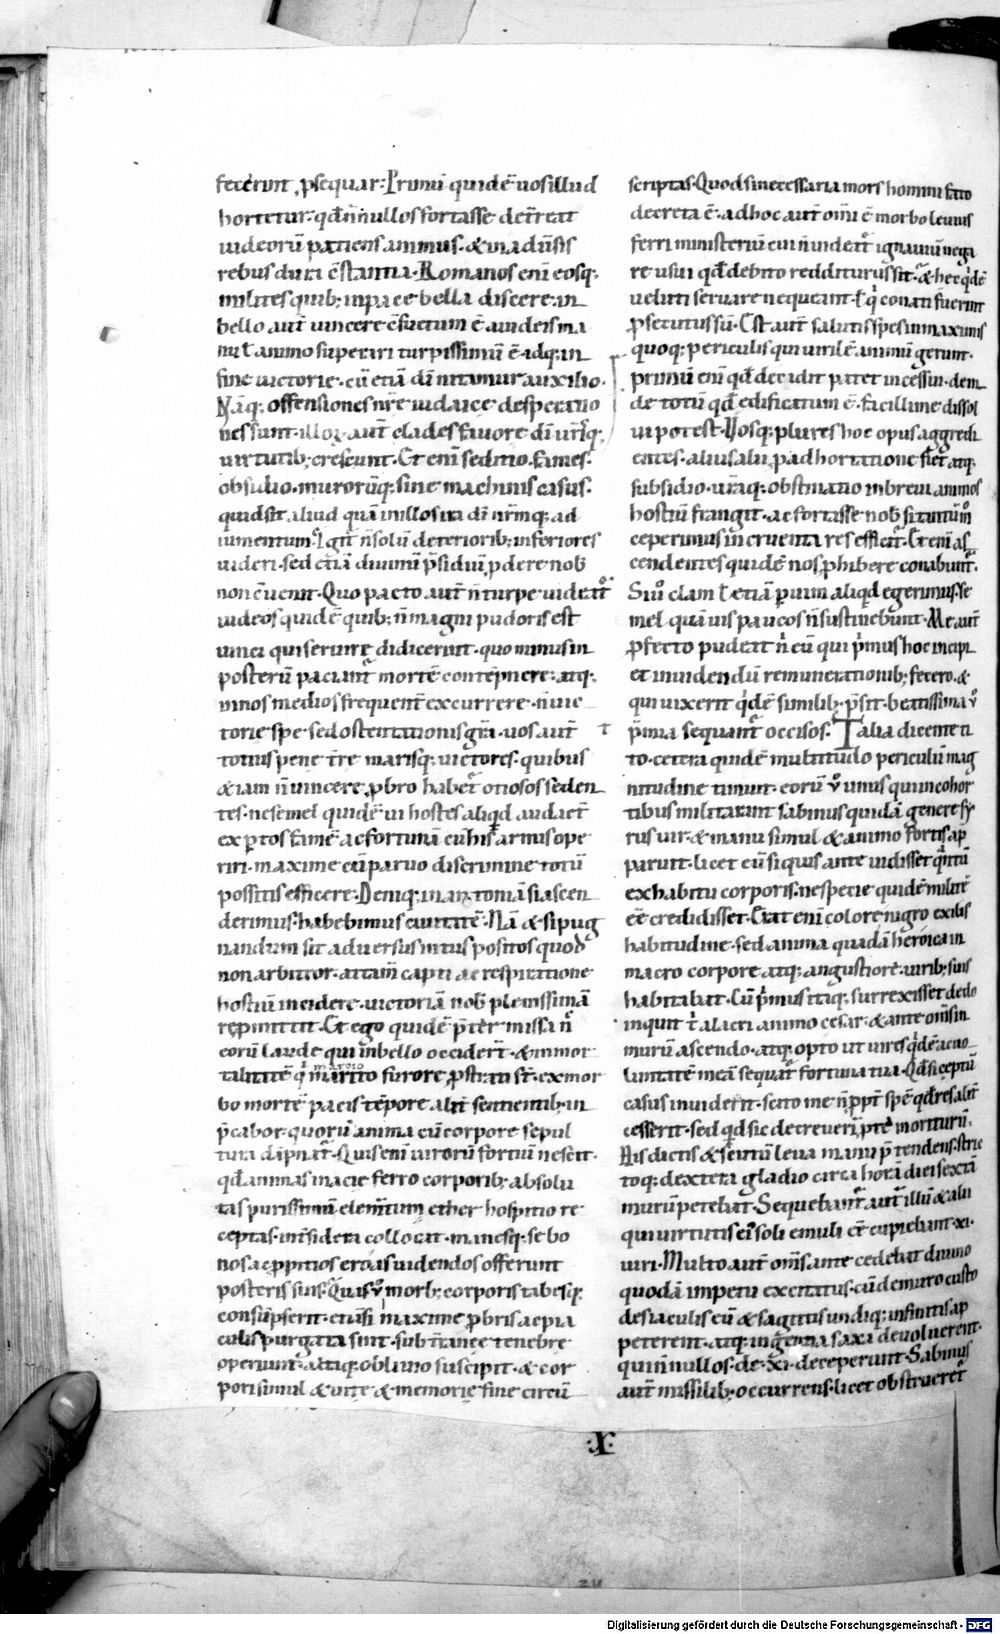 fecerint, ꝑsequar: Primū quidē uos illud
hortetur· qd̄ n̄nullos fortasse det̄reat
uideorū patiens animus· & in adūsis
rebus duri cōstantia· Romanos enī eosq;
milites quib; in pace bella discere· in
bello aut̄ uincere cōsuetum ē· a iudeis ma
nu ł animo superari turpissimū ē· idq; in
fine uictorie· cū etiā dī nitamur auxilio·
Nāq; offensiones nr̄e iudaice desperatio
nes sunt· illoꝝ aut̄ clades fauore dī ur̄isq;
uirtutib; crescunt· Et enī seditio· fames·
obsidio· murorūq; sine machinis casus·
quid sit aliud quā in illos ira dī nr̄mq; ad
iumentum· Igit̄ n̄ solū deteriorib; inferiores
uideri· sed etiā diuinū p̄sidiū ꝓdere nob̄
non cōuenit· Quo pacto aut̄ n̄ turpe uideat̄
iudeos quidē quib; n̄ magni pudoris est
uinci qui seruire didicerunt· quo minus in
posterū paciant̄ mortē contēpnere· atq;
in nos medios frequent̄ excurrere· n̄ uic
torie spe· sed ostentationis gr̄a· uos aut̄
totius pene t̄re marisq; uictores· quibus
& iam n̄ uincere ꝓbro habet̄ otiosos seden
tes· ne semel quidē ui hostes aliqd̄ audaci
expertos famē ac fortunā cū his armis ope
riri· maxime cū paruo discrimine totū
possitis efficere· Deniq; in antoniā si ascen
derimus· habebimus ciuitatē· Nā & si pug
nandum sit aduersus intus positos quod
non arbitror· attam̄ capti ac respiratione
hostiū incidere· uictoriā nob̄ plenissimā
repmittit· Et ego quidē p̄termissa n̄
eorū laude qui in bello occider̄t· & inmor
talitatē qͥ marcio
marito furore ꝓstrati st̄· ex mor
bo mortē pacis tēpore alit̄ sentientib; in
p̄cabor· quorū anima cū corpore sepul
tura dāpnat̄· Quis enī uirorū fortiū nescit·
qd̄ animas in acie ferro corporib; absolu
tas purissimū elem̄tum ether hospitio re
ceptas· int̄ sidera collocat· manesq; se bo
nos ac ꝓpitios eroas uidendos offerunt
posteris suis· Quas ū morb; corporis tabesq;
consūpserit· etiāsi maxime ꝓbris ac pia
culis purgata sint· sub t̄ranee tenebre
operiunt· altaq; obliuio suscipit· & cor
pori simul & uite & memorie fine circū
scriptas· Quod si necessaria mors homini fato
decreta ē· ad hoc aut̄ omī ē morbo leuius
ferri ministeriū cui n̄ uideat̄ ignauiū nega
re usui qd̄ debito redditurus sit· & hec qͥdē
ueluti seruare nequeant· qͥ conati fuerint
ꝓsecutus sū· Est aut̄ salutis spes in maximis
quoq; periculis qui uirilē animū gerunt·
primū enī qd̄ decidit patet incessui· dein
de totū qd̄ edificatum ē· facillime dissol
ui potest· Uosq; plures hoc opus aggredi
entes· alius alii ꝓ adhortatione fiet atq;
subsidio· ur̄aq; obstinatio in breui animos
hostiū frangit· ac fortasse nob̄ si tantum̄
ceperimus incruenta res efficiet̄· Et enī as
cendentes quidē nos ꝓhibere conabunt̄·
Siū clam ł etiā ꝑ uim aliqd̄ egerimus· se
mel quāuis paucos n̄ sustinebunt· Me aut̄
ꝓfecto pudeat n̄ eū qui pͥmus hoc incipi
et inuidendū remunerationib; fecero· &
qui uixerit qͥdē similib; p̄sit· beatissima ū
p̄mia sequant̄ occisos· Talia dicente ti
to· cetera quidē multitudo periculū mag
nitudine timuit· eorū ū unus qui in cohor
tibus militarant sabinus quidā genere sy
rus uir· & manu simul & animo fortis ap
paruit· licet eū siquis ante uidisset qͣntū
ex habitu corporis· ne specie quidē militē
ēe credidisset· Erat enī colore nigro exilis
habitudine· sed anima quadā heroica in
macro corpore atq; angustiore· uirib; suis
habitabat· Cū pͥmus itaq; surrexisset dedo
inquit t̄ alacri animo cesar· & ante om̄s in
murū ascendo· atq; opto ut uires qͥdē ac uo
luntatē meā sequat̄ fortuna tua· Qd̄ si ceptū
casus inuiderit· scito me n̄ ꝓpt̄ spē qd̄ res alit̄
cesserit· sed qd̄ sic decreueri ꝓ te moriturū·
His dictis & scutū leua manu p̄tendens· stric
toq; dextera gladio circa horā diei sextā
murū petebat· Sequebant̄ aut̄ illū & alii
qui uirtutis eiꝰ soli emuli ēe cupiebant· xi·
uiri· Multo aut̄ om̄s ante cedebat diuino
quodā impetu excitatus· cū de muro custo
des iaculis eū & sagittis undiq; infinitis ap
peterent· atq; ingentia saxa deuoluerent·
qui n̄nullos· de· xi· deceperunt· Sabinus
aut̄ missilib; occurrens· licet obstrueret̄
·x·
Digitalisierung gefördert durch die Deutsche Forschungsgemeinschaft - DFG